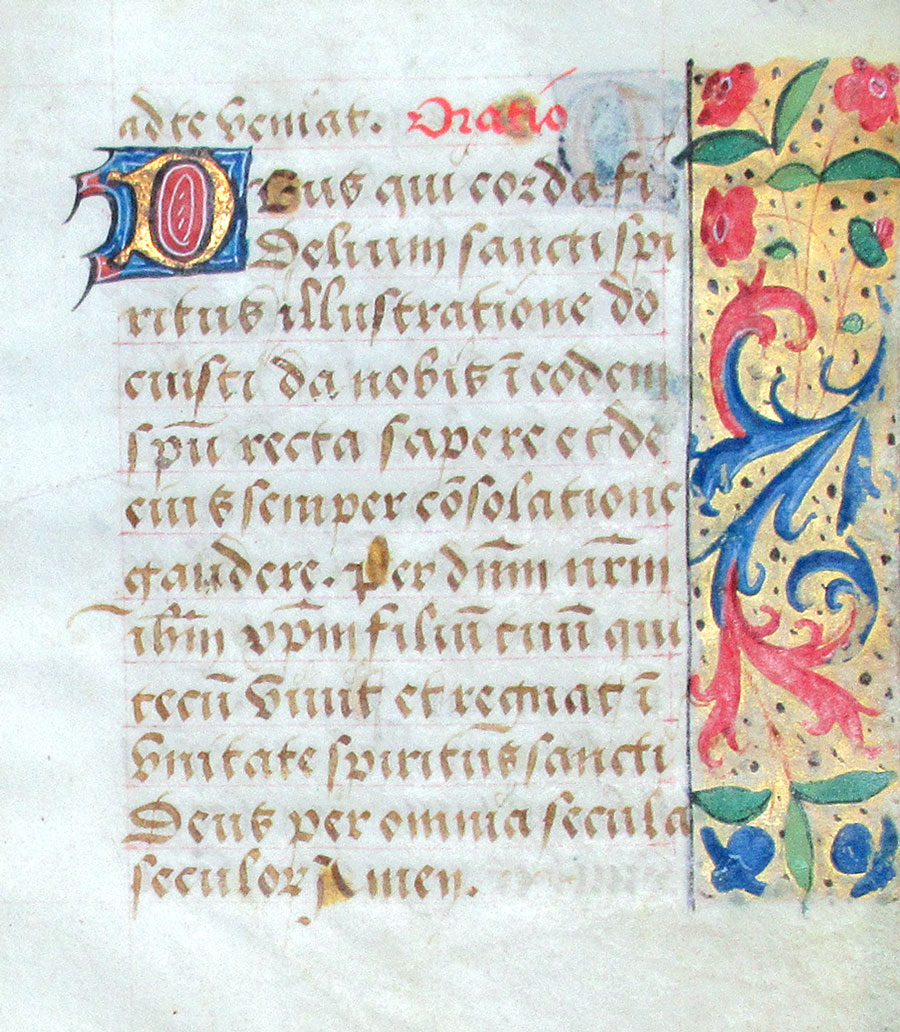 ad te veniat. Oratio
Deus qui corda fi
delium sancti spi
ritus illustratione do
cuisti da nobis ī eodem
spū recta sapere et de
eius semper cōsolatione
gaudere. Per dn̄m nr̄m
ihm̄ xp̄m filiū tuū qui
tecū vivit et regnat ī
vnitate spiritūs sancti
Deus per omnia secula
seculor Amen.